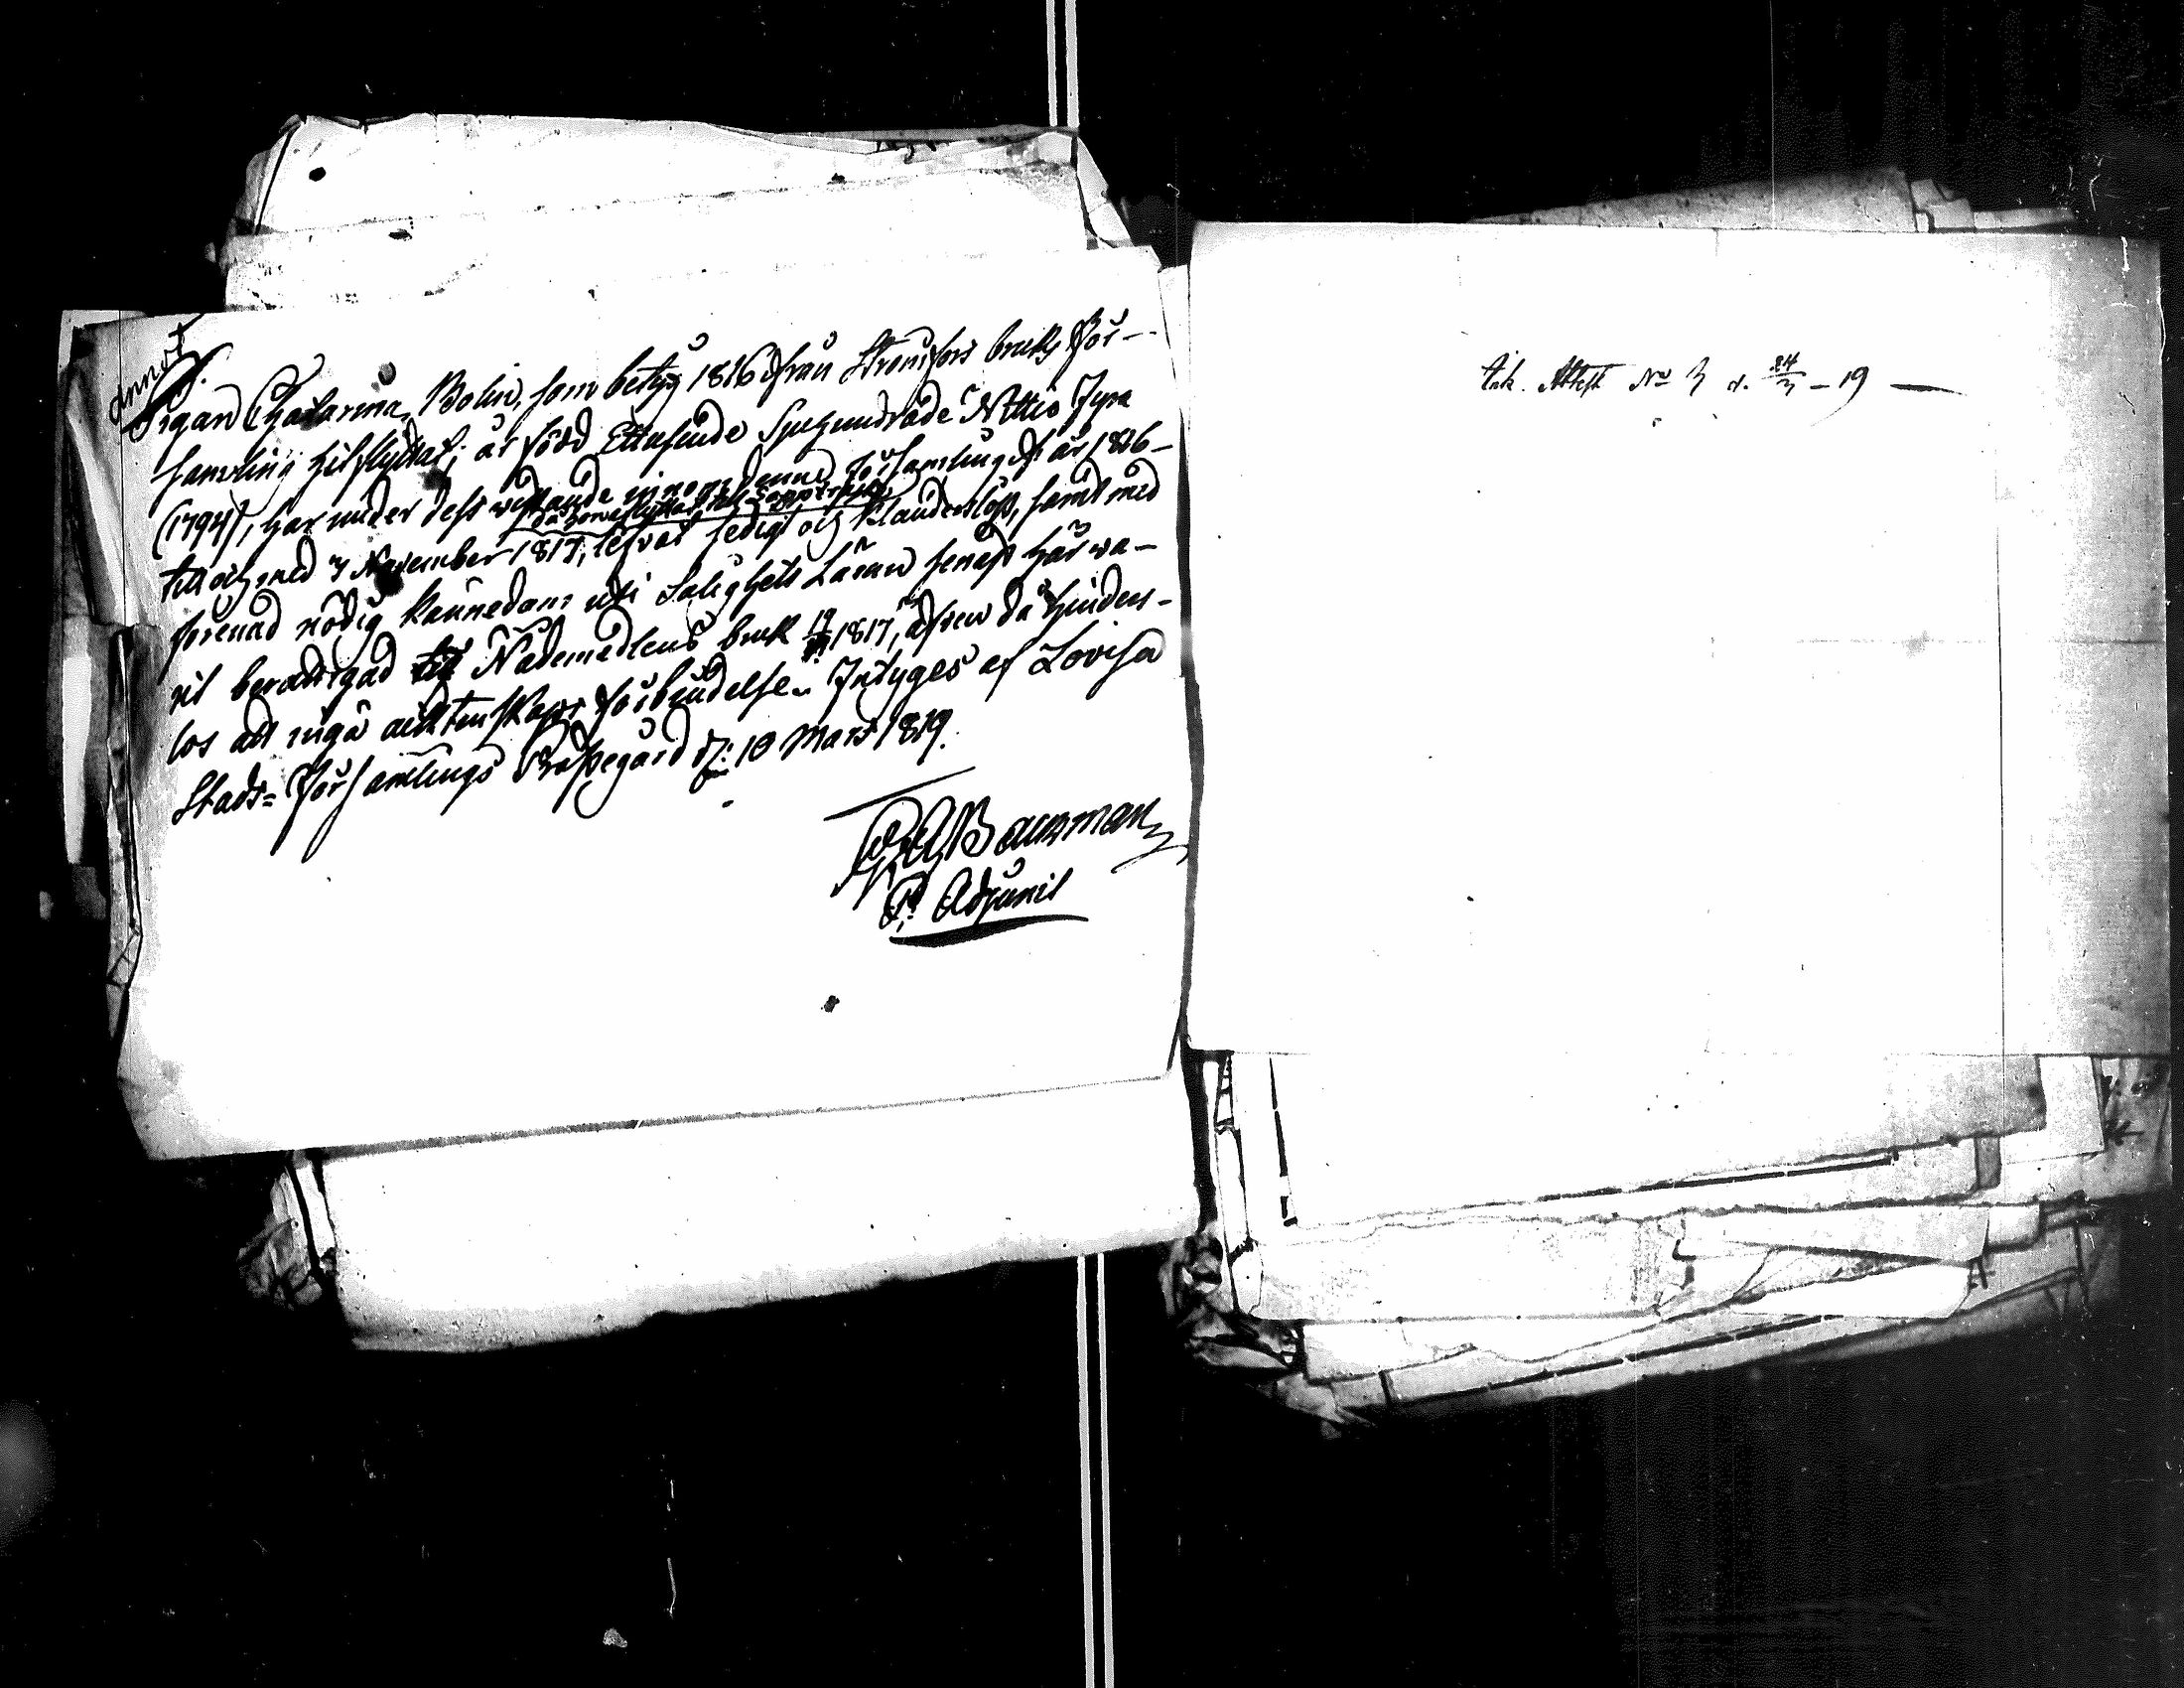 annot
Pigan Chatarina Bolin, som betyg 1816 ifrån Strömfors bruks För-
samling hitflyttat; är född Ettusende Sjuhundrade Nittio Fyra
(1794), har under dess vistande inom denne Församling ifr. år 1816-
då bortflyttat till
till och med 3 November 1817, lefvat sedigt och klanderslöst, samt med
förenad nödig kännedom uti Salighets Läran senast här va-
rit berättigad till Nademedlens bruk 1817, äfven då hinders-
lös att ingå äcktenskaps förbindelse. Intyges af Lovisa
Stads- Församlings Prästegård d: 10 Mars 1819.
Bauman
P. Adjunct
Ink. Attest No 3 d. 24/3 - 19 —